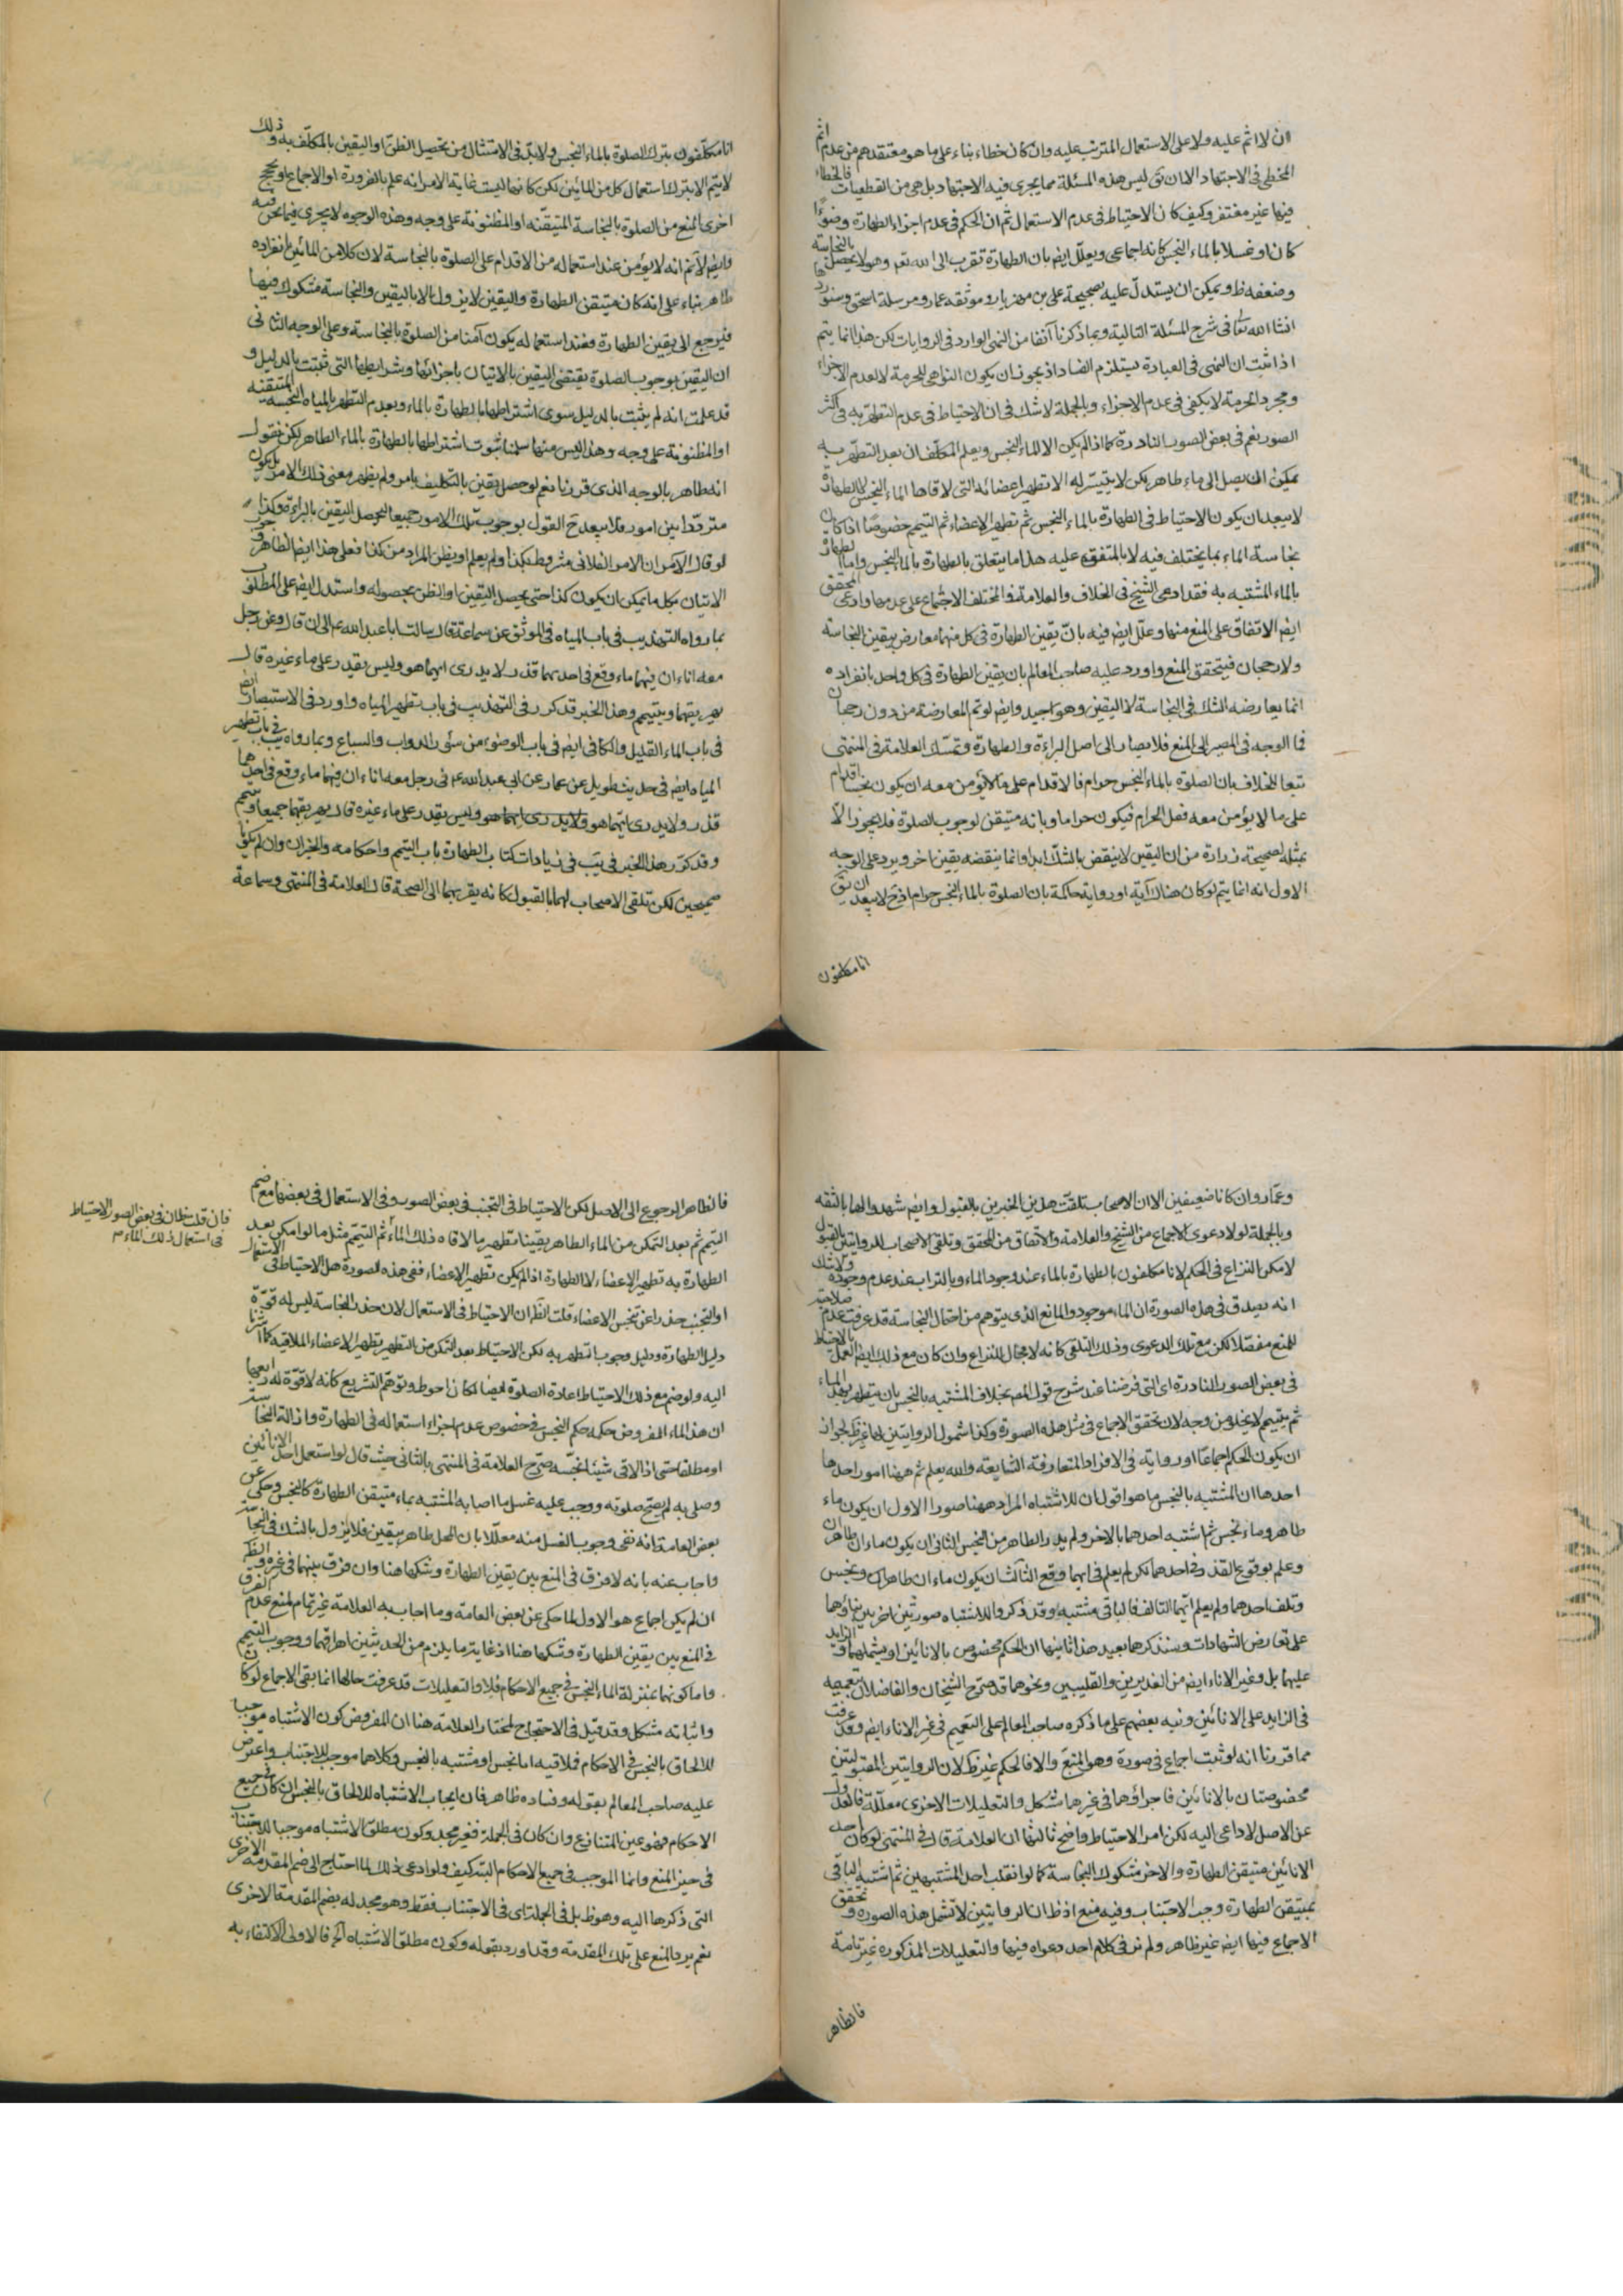 ان لا اثم عليه ولا على الاستعمال المترتب عليه وان كان خطاء بناء على ما هو معتقدهم من عدم اثم
المخطى فى الاجتهاد الا ان يق ليس هذه المسئلة مما يجرى فيه الاجتهاد بل هى من القطعيات فالخطاء
فيها غير مغتفر وكيف كان الاحتياط فى عدم الاستعمال ثم ان الحكم فى عدم اجزاء الطهارة وضوءًا
كان او غسلا بالماء النجس كانه اجماعى ويعلل ايضم بان الطهارة تقرب الى الله تعم وهو لا يحصل بالنجاسة
وضعفه ظ ويمكن ان يستدل عليه بصحيحة على بن مهزيار وموثقه عمار ومرسلة اسحق وسنوردها
انشا الله تعا فى شرح المسئلة التالية وبما ذكرنا آنفا من النهى الوارد فى الروايات لكن هذا انما يتم
اذا ثبت ان النهى فى العبادة يستلزم الفساد اذ يجوز ان يكون النواهى للحرمة لا لعدم الاجزاء
ومجرد الحرمة لا يكفى فى عدم الاجزاء وبالجملة لا شك فى ان الاحتياط فى عدم التطهر به فى اكثر
الصور نعم فى بعض الصور النادرة كما اذا لم يكن الا الماء النجس ويعلم المكلف ان بعد التطهر به
يمكن ان يصل الى ماء طاهر لكن لا يتيسر له الا تطهير اعضائه التى لاقاها الماء النجس لا الطهارة
لا يبعد ان يكون الاحتياط فى الطهارة بالماء النجس ثم تطهير الاعضاء ثم التيمم خصوصًا اذا كان
نجاسة الماء بما يختلف فيه لا بالمتفق عليه هذا ما يتعلق بالطهارة بالماء النجس واما الطهارة
بالماء المشتبه به فقد ادعى الشيخ فى الخلاف والعلامة فى المختلف الاجماع على عدمها وادعى المحقق
ايضم الاتفاق على المنع منها وعلل ايضم فيه بان يقين الطهارة فى كل منهما معارض بيقين النجاسة
ولا رجحان فيتحقق المنع واورد عليه صاحب المعالم بان يقين الطهارة فى كل واحد بانفراده
انما يعارضه الشك فى النجاسة لا اليقين وهو جيد وايضم لو تم المعارضة من دون رجحان
فما الوجه فى المصير الى المنع فلا يصار الى اصل البراءة والطهارة وتمسك العلامة فى المنتهى
تبعا للخلاف بان الصلوة بالماء النجس حرام فالاقدام على ما لا يؤمن معه ان يكون نجسا اقدام
على ما لا يؤمن معه فعل الحرام فيكون حراما وبانه متيقن لوجوب الصلوة فلا يجوز الا
بمثله لصحيحة زرارة من ان اليقين لا ينقض بالشك ابدا وانما ينقضه يقين اخر ويرد على الوجه
الاول انه انما يتم لو كان هناك آية او رواية حاكمة بان الصلوة بالماء النجس حرام اذ ح لا يبعد ان يق
انا مكلفون
انا مكلفون بترك الصلوة بالماء النجس ولا بد فى الامتثال من تحصيل الظن او اليقين بالمكلف به وذلك
لا يتم الا بترك استعمال كل من المائين لكن كانها ليست غاية الامر انه علم بالضرورة او الاجماع او بحجج
اخرى المنع من الصلوة بالنجاسة المتيقنه او المظنونة على وجه وهذه الوجوه لا يجرى فيما نحن فيه
وايضم لا نم انه لا يؤمن عند استعماله من الاقدام على الصلوة بالنجاسة لان كلا من المائين بانفراده
طاهر بناء على انه كان متيقن الطهارة واليقين لا يزول الا باليقين والنجاسة مشكوك فيها
فيرجع الى يقين الطهارة فعند استعماله يكون آمنا من الصلوة بالنجاسة وعلى الوجه الثانى
ان اليقين بوجوب الصلوة يقتضى اليقين بالاتيان باجزائها وشرايطها التى ثبتت بالدليل و
قد علمت انه لم يثبت بالدليل سوى اشتراطها بالطهارة بالماء وبعدم التطهر بالمياه النجسة المتيقنه
او المظنونة على وجه وهذا ليس منها سلمنا ثبوت اشتراطها بالطهارة بالماء الطاهر لكن نقول
انه طاهر بالوجه الذى قررنا نعم لو حصل يقين بالتكليف بامر ولم يظهر معنى ذلك الامر بل يكون
مترددا بين امور فلا يبعد ح القول بوجوب تلك الامور جميعا ليحصل اليقين بالبراءة وكذا
لو قال الآمر ان الامر الفلانى مشروط بكذا ولم يعلم او يظن المراد من كذا فعلى هذا ايضم الظاهر وجوب
الاتيان بكل ما يمكن ان يكون كذا حتى يحصل اليقين او الظن بحصوله واستدل ايضم على المطلب
بما رواه التهذيب فى باب المياه فى الموثق عن سماعة قال سالت ابا عبد الله عم الى ان قال وعن رجل
معه اناءان فيهما ماء وقع فى احدهما قذر لا يدرى ايهما هو وليس يقدر على ماء غيره قال
يهريقهما ويتيمم وهذا الخبر قد كرر فى التهذيب فى باب تطهير المياه واورد فى الاستبصار ايضا
فى باب الماء القليل والكافى ايضم فى باب الوضوء من سئور الدواب والسباع وبما رواه يب فى باب تطهير
المياه ايضم فى حديث طويل عن عمار عن ابى عبد الله عم فى رجل معه اناءان فيهما ماء وقع فى احدهما
قذر ولا يدرى ايهما هو ولا يدرى ايهما هو وليس يقدر على ماء غيره قال يهريقهما جميعا ويتيمم
وقد كرر هذا الخبر فى يب فى زيادات كتاب الطهارة باب التيمم واحكامه والخبران وان لم يكونا
صحيحين لكن تلقى الاصحاب لهما بالقبول كانه يقربهما الى الصحة قال العلامة فى المنتهى وسماعة
وعمار وان كانا ضعيفين الا ان الاصحاب تلقت هذين الخبرين بالقبول وايضم شهدوا لهما بالثقه
وبالجملة لولا دعوى الاجماع من الشيخ والعلامة والاتفاق من المحقق وتلقى الاصحاب للروايتين بالقبول
لامكن النزاع فى الحكم لانا مكلفون بالطهارة بالماء عند وجود الماء وبالتراب عند عدم وجوده ولا شك
انه يصدق فى هذه الصورة ان الماء موجود والمانع الذى يتوهم من احتمال النجاسة قد عرفت عدم صلاحيته
للمنع مفصلا لكن مع تلك الدعوى وذلك التلقى كانه لا مجال للنزاع وان كان مع ذلك ايضم العمل بالاحتياط
فى بعض الصور النادرة اى التى فرضنا عند شرح قول المصم بخلاف المشتبه بالنجس بان يتطهر بهذا الماء
ثم يتيمم لا يخلو من وجه لان تحقق الاجماع فى مثل هذه الصورة وكذا شمول الروايتين لها غير ظ لجواز
ان يكون الحكم اجماعا او رواية فى الافراد المتعارفة الشايعة والله يعلم ثم ههنا امور احدها
احدها ان المشتبه بالنجس ما هو اقول ان للاشتباه المراد ههنا صورا الاول ان يكون ماء
طاهر وماء نجس ثم اشتبه احدهما بالاخر ولم يدر الطاهر من النجس الثانى ان يكون ماءان طاهران
وعلم بوقوع القذر فى احدهما لكن لم يعلم فى ايهما وقع الثالث ان يكون ماءان طاهر ونجس
وتلف احدهما ولم يعلم ايهما التالف فالباقى مشتبه وقد ذكروا للاشتباه صورتين اخريين بناؤهما
على تعارض الشهادات وسنذكرهما بعيد هذا ثانيها ان الحكم مخصوص بالانائين او يشملهما والزايد
عليهما بل وغير الاناء ايضم من الغديرين والقليبين ونحوهما قد صرح الشيخان والفاضلان بتعميمه
فى الزايد على الانائين ونبه بعضهم على ما ذكره صاحب المعالم على التعميم فى غير الاناء ايضم وقد عرفت
مما قررنا انه لو ثبت اجماع فى صورة وهو المتبع والا فالحكم غير ظ لان الروايتين المقبولتين
مخصوصتان بالانائين فاجراؤهما فى غيرهما مشكل والتعليلات الاخرى معللة فالعدول
عن الاصل لا داعى اليه لكن امر الاحتياط واضح ثالثها ان العلامة قال فى المنتهى لو كان احد
الانائين متيقن الطهارة والاخر مشكوك النجاسة كما لو انقلب احد المشتبهين ثم اشتبه الباقى
بمتيقن الطهارة وجب الاجتناب وفيه منع اذ ظ ان الروايتين لا تشمل هذه الصورة وتحقق
الاجماع فيها ايضم غير ظاهر ولم نر فى كلام احد دعواه فيها والتعليلات المذكورة غير تامة
فالظاهر
فالظاهر الرجوع الى الاصل لكن الاحتياط فى التجنب فى بعض الصور وفى الاستعمال فى بعضها مع ضم
التيمم ثم بعد التمكن من الماء الطاهر يقينا تطهير ما لاقاه ذلك الماء ثم التيمم مثل ما لو امكن بعد
الطهارة به تطهير الاعضاء لا الطهارة اذا لم يكن تطهير الاعضاء ففى هذه الصورة هل الاحتياط فى الاستعمال
او التجنب حذرا عن تنجس الاعضاء قلت الظ ان الاحتياط فى الاستعمال لان حذر النجاسة ليس له قوة
دليل الطهارة ودليل وجوب التطهر به لكن الاحتياط بعد التمكن من التطهير تطهير الاعضاء الملاقيه كما اشرنا
اليه ولو ضم مع ذلك الاحتياط اعادة الصلوة ايضا لكان احوط وتوهم التشريع كانه لا قوة له رابعها
ان هذا الماء المفروض حكمه حكم النجس فى خصوص عدم اجزاء استعماله فى الطهارة وازالة النجاسة
او مطلقا حتى اذا لاقى شيئا نجسه صرح العلامة فى المنتهى بالثانى حيث قال لو استعمل احد الانائين
وصلى به لم يصح صلوته ووجب عليه غسل ما اصابه المشتبه بماء متيقن الطهارة كالنجس وحكى عن
بعض العامة انه نفى وجوب الغسل منه معللا بان المحل طاهر بيقين فلا يزول بالشك فى النجاسة
واجاب عنه بانه لا فرق فى المنع بين يقين الطهارة وشكها هنا وان فرق بينهما فى غيره والظ
ان لم يكن اجماع هو الاول لما حكى عن بعض العامة وما اجاب به العلامة غير تمام لمنع عدم الفرق
فى المنع بين يقين الطهارة وشكها هنا اذ غاية ما يلزم من الحديثين اهراقهما ووجوب التيمم
واما كونهما بمنزلة الماء النجس فى جميع الاحكام فلا والتعليلات قد عرفت حالها انما بقى الاجماع لو كان
واثباته مشكل وقد قيل فى الاحتجاج لمختار العلامة هنا ان المفروض كون الاشتباه موجبا
للالحاق بالنجس فى الاحكام فملاقيه اما نجس او مشتبه بالنجس وكلاهما موجب للاجتناب واعترض
عليه صاحب المعالم بقوله وفساده ظاهر فان ايجاب الاشتباه للالحاق بالنجس ان كان فى جميع
الاحكام فهو عين المتنازع وان كان فى الجملة فغير مجد وكون مطلق الاشتباه موجبا للاجتناب
فى حيز المنع وانما الموجب فى جميع الاحكام البتة كيف ولو ادعى ذلك لما احتاج الى ضم المقدمة الاخرى
التى ذكرها اليه وهو ظ بل فى الجملة اى فى الاجتناب فقط وهو مجد له بضم المقدمة الاخرى
نعم يرد المنع على تلك المقدمة وقد اورد بقوله وكون مطلق الاشتباه الخ فالاولى الاكتفاء به
فان قلت ظ ان فى بعض الصور الاحتياط
فى استعمال ذلك الماء م